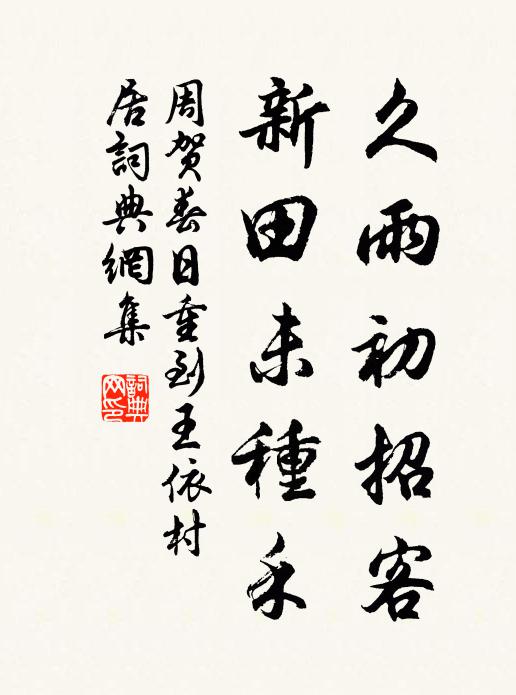 久雨初招客
新田未種禾
周贺春日重到王依村
居詞典網集
詞典网印